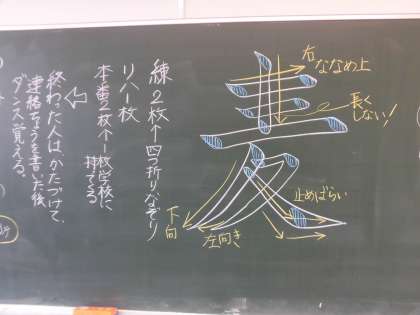 麦
右ななめ上
長く
しない!
止めばらい
左向き
下向
練2枚↑四つ折りなぞり
リハ1枚
本番2枚↑1枚学校に
持ってくる
終わった人はかたづけて、
連絡ちょうを書いた後
ダンス覚える。